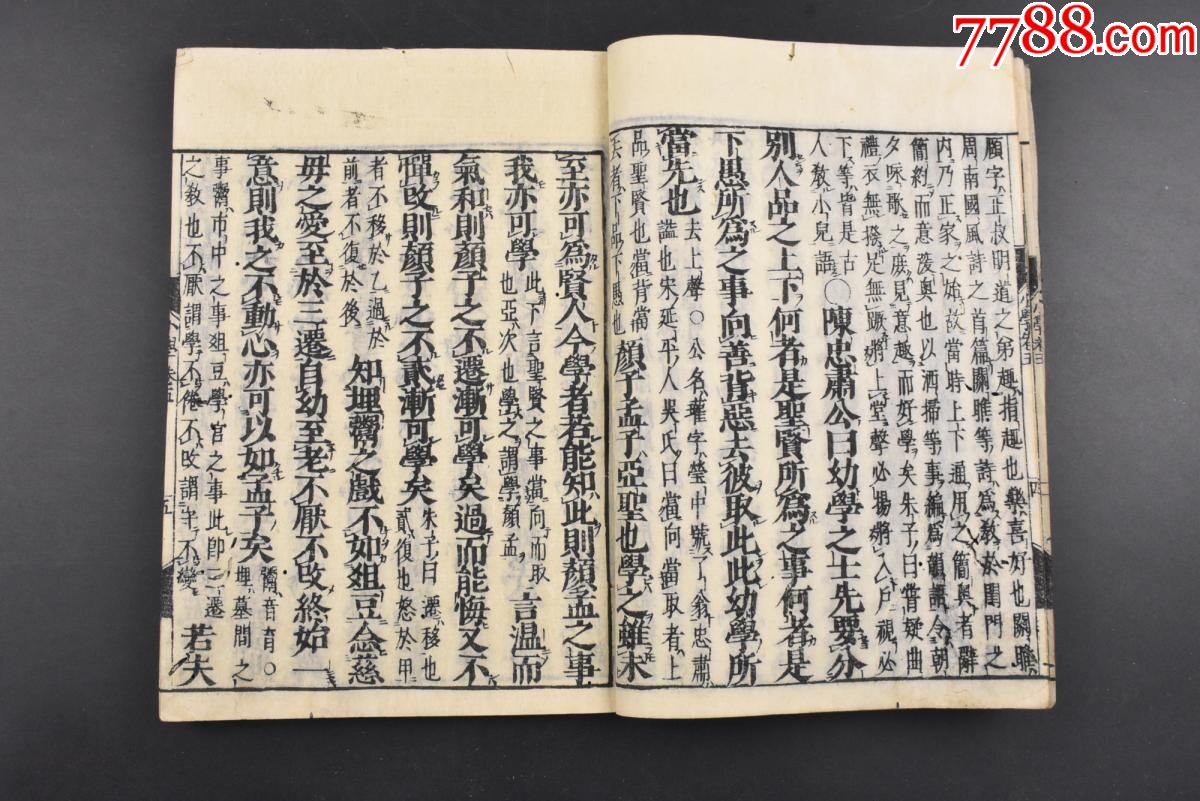 7788.com
頤字正叔明道之弟趣指趣也樂喜好也關雎
周南國風詩之首篇關雎等詩爲教於閨門之
内乃正家之始故當時上下通用之簡與者辭
簡約而意渡奥也以洒掃等事編爲韻語令朝
夕咏歌之庶見意趣而好學矣朱子曰嘗疑曲
禮衣無撥足無蹶將上堂聲必揚將入戶視必
下等皆是古
人教小兒語
○陳忠肅公曰幼學之士先要分
別人品之上下何者是聖賢所爲之事何者是
下愚所爲之事向善背惡去彼取此此幼學所
當先也
去上聲○公名瓘字瑩中號了翁忠肅
謚也宋延平人吳氏曰當向當取者上
品聖賢也當背當
去者下品下愚也
顏子孟子亞聖也學之雖未
至亦可爲賢人今學者若能知此則顏孟之事
我亦可學
此下言聖賢之事當向而取
也亞次也學之謂學顏孟
言温而
氣和則顏子之不遷漸可學矣過而能悔又不
憚改則顏子之不貳漸可學矣
朱子曰遷移也
貳復也怒於甲
者不移於乙過於
前者不復於後
知埋鬻之戲不如俎豆念慈
母之愛至於三遷自幼至老不厭不改終始一
意則我之不動心亦可以如孟子矣
鬻音育○
埋墓間之
事鬻市中之事俎豆學宮之事此即三遷
之教也不厭謂學不倦不改謂守不變
若夫
五